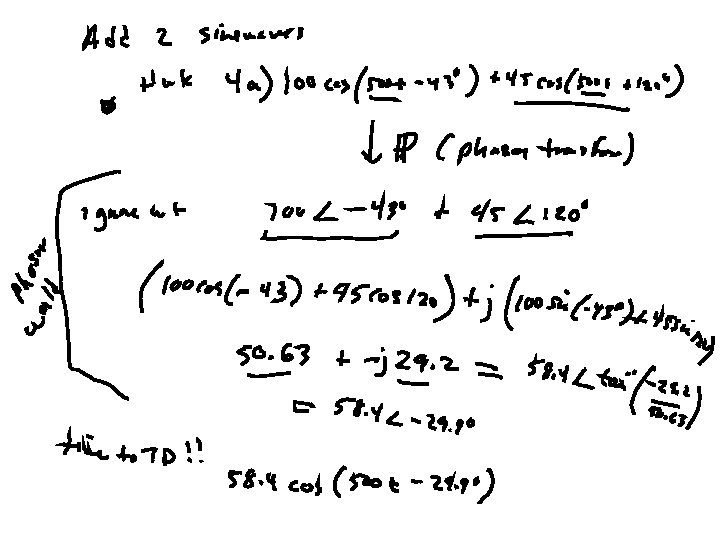 Add 2 sinewaves
Hwk 4a) 100 cos(500t -43°) + 45 cos(500t +120°)
↓ P (phasor transform)
ignore wt 100∠-43° + 45∠120°
phasor world
(100cos(-43) + 45cos120) + j(100sin(-43°) + 45sin120)
50.63 + -j29.2 = 58.4∠tan⁻¹(-29.2/50.63)
= 58.4∠-29.9°
to TD!!
58.4 cos(500t - 29.9°)